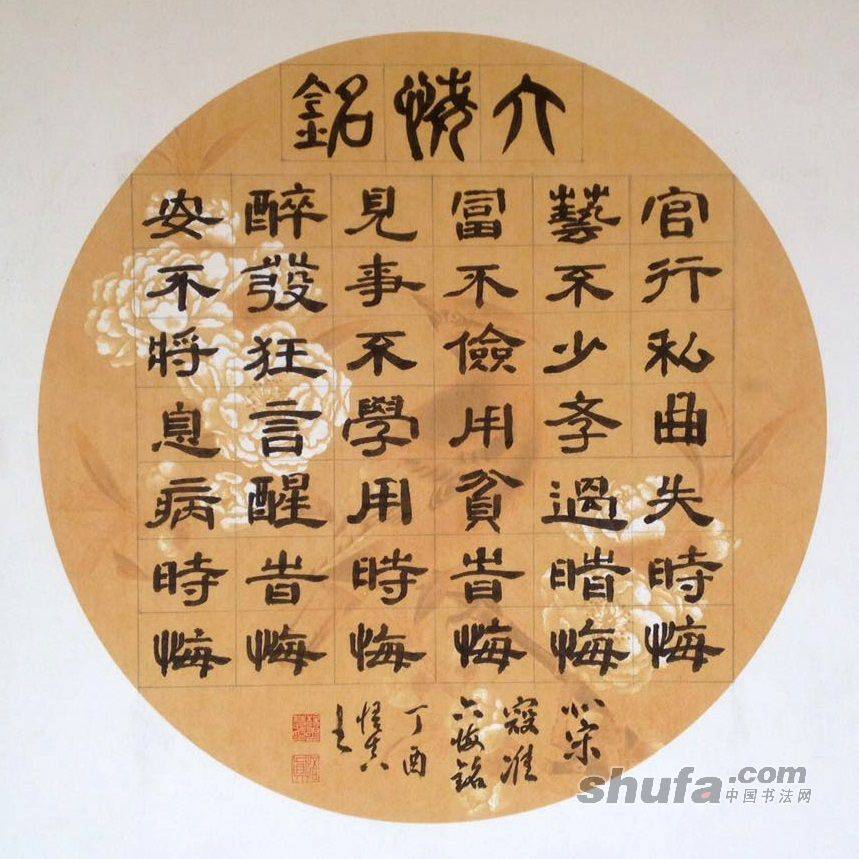 六悔銘
官行私曲失時悔
藝不少斈過時悔
富不儉用貧旹悔
見事不學用時悔
醉發狂言醒旹悔
安不將息病時悔
北宋
寇准
六悔銘
丁酉
shufa.com
中国书法网